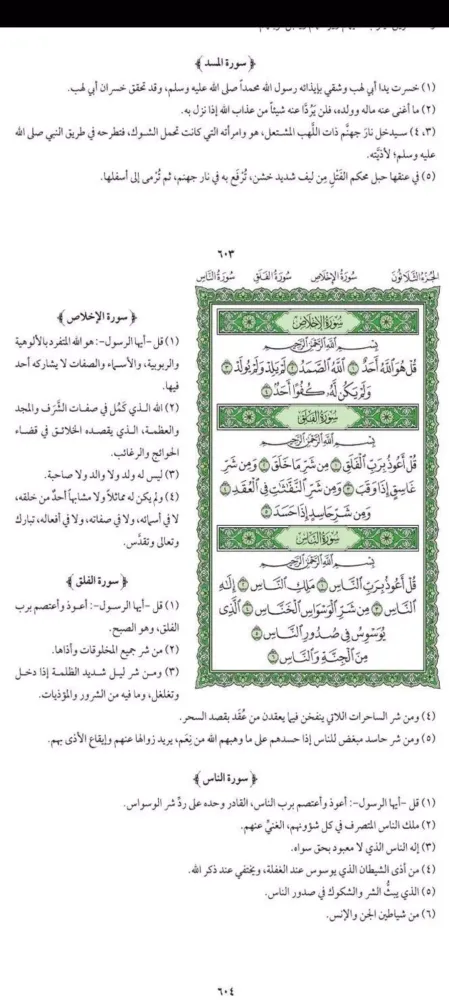 ﴿ سورة المسد ﴾
(١) خسرت يدا أبي لهب وشقي بإيذائه رسول الله محمداً صلى الله عليه وسلم، وقد تحقق خسران أبي لهب.
(٢) ما أغنى عنه ماله وولده، فلن يَرُدَّا عنه شيئاً من عذاب الله إذا نزل به.
(٣، ٤) سيدخل نارَ جهنَّم ذات اللَّهب المشتعل، هو وامرأته التي كانت تحمل الشوك، فتطرحه في طريق النبي صلى الله
عليه وسلم؛ لأذيَّته.
(٥) في عنقها حبل محكم الفَتْلِ مِن ليف شديد خشن، تُرْفَع به في نار جهنم، ثم تُرْمى إلى أسفلها.
٦٠٣
الجزء الثلاثون سورة الإخلاص سورة الفلق سورة الناس
سورة الإخلاص
بِسْمِ اللَّهِ الرَّحْمَٰنِ الرَّحِيمِ
قُلْ هُوَ اللَّهُ أَحَدٌ ١ اللَّهُ الصَّمَدُ ٢ لَمْ يَلِدْ وَلَمْ يُولَدْ ٣
وَلَمْ يَكُن لَّهُ كُفُوًا أَحَدٌ ٤
سورة الفلق
بِسْمِ اللَّهِ الرَّحْمَٰنِ الرَّحِيمِ
قُلْ أَعُوذُ بِرَبِّ الْفَلَقِ ١ مِن شَرِّ مَا خَلَقَ ٢ وَمِن شَرِّ
غَاسِقٍ إِذَا وَقَبَ ٣ وَمِن شَرِّ النَّفَّاثَاتِ فِي الْعُقَدِ ٤
وَمِن شَرِّ حَاسِدٍ إِذَا حَسَدَ ٥
سورة الناس
بِسْمِ اللَّهِ الرَّحْمَٰنِ الرَّحِيمِ
قُلْ أَعُوذُ بِرَبِّ النَّاسِ ١ مَلِكِ النَّاسِ ٢ إِلَٰهِ
النَّاسِ ٣ مِن شَرِّ الْوَسْوَاسِ الْخَنَّاسِ ٤ الَّذِي
يُوَسْوِسُ فِي صُدُورِ النَّاسِ ٥
مِنَ الْجِنَّةِ وَالنَّاسِ ٦
﴿ سورة الإخلاص ﴾
(١) قل -أيها الرسول-: هو الله المتفرد بالألوهية
والربوبية، والأسماء والصفات لا يشاركه أحد
فيها.
(٢) الله الذي كَمُل في صفات الشَّرَف والمجد
والعظمة، الذي يقصده الخلائق في قضاء
الحوائج والرغائب.
(٣) ليس له ولد ولا والد ولا صاحبة.
(٤) ولم يكن له مماثلاً ولا مشابهاً أحدٌ من خلقه،
لا في أسمائه، ولا في صفاته، ولا في أفعاله، تبارك
وتعالى وتقدَّس.
﴿ سورة الفلق ﴾
(١) قل -أيها الرسول-: أعوذ وأعتصم برب
الفلق، وهو الصبح.
(٢) من شر جميع المخلوقات وأذاها.
(٣) ومن شر ليل شديد الظلمة إذا دخل
وتغلغل، وما فيه من الشرور والمؤذيات.
(٤) ومن شر الساحرات اللاتي ينفخن فيما يعقدن من عُقَد بقصد السحر.
(٥) ومن شر حاسد مبغض للناس إذا حسدهم على ما وهبهم الله من نِعَم، يريد زوالها عنهم وإيقاع الأذى بهم.
﴿ سورة الناس ﴾
(١) قل -أيها الرسول-: أعوذ وأعتصم برب الناس، القادر وحده على ردِّ شر الوسواس.
(٢) ملك الناس المتصرف في كل شؤونهم، الغنيِّ عنهم.
(٣) إله الناس الذي لا معبود بحق سواه.
(٤) من أذى الشيطان الذي يوسوس عند الغفلة، ويختفي عند ذكر الله.
(٥) الذي يبثُّ الشر والشكوك في صدور الناس.
(٦) من شياطين الجن والإنس.
٦٠٤